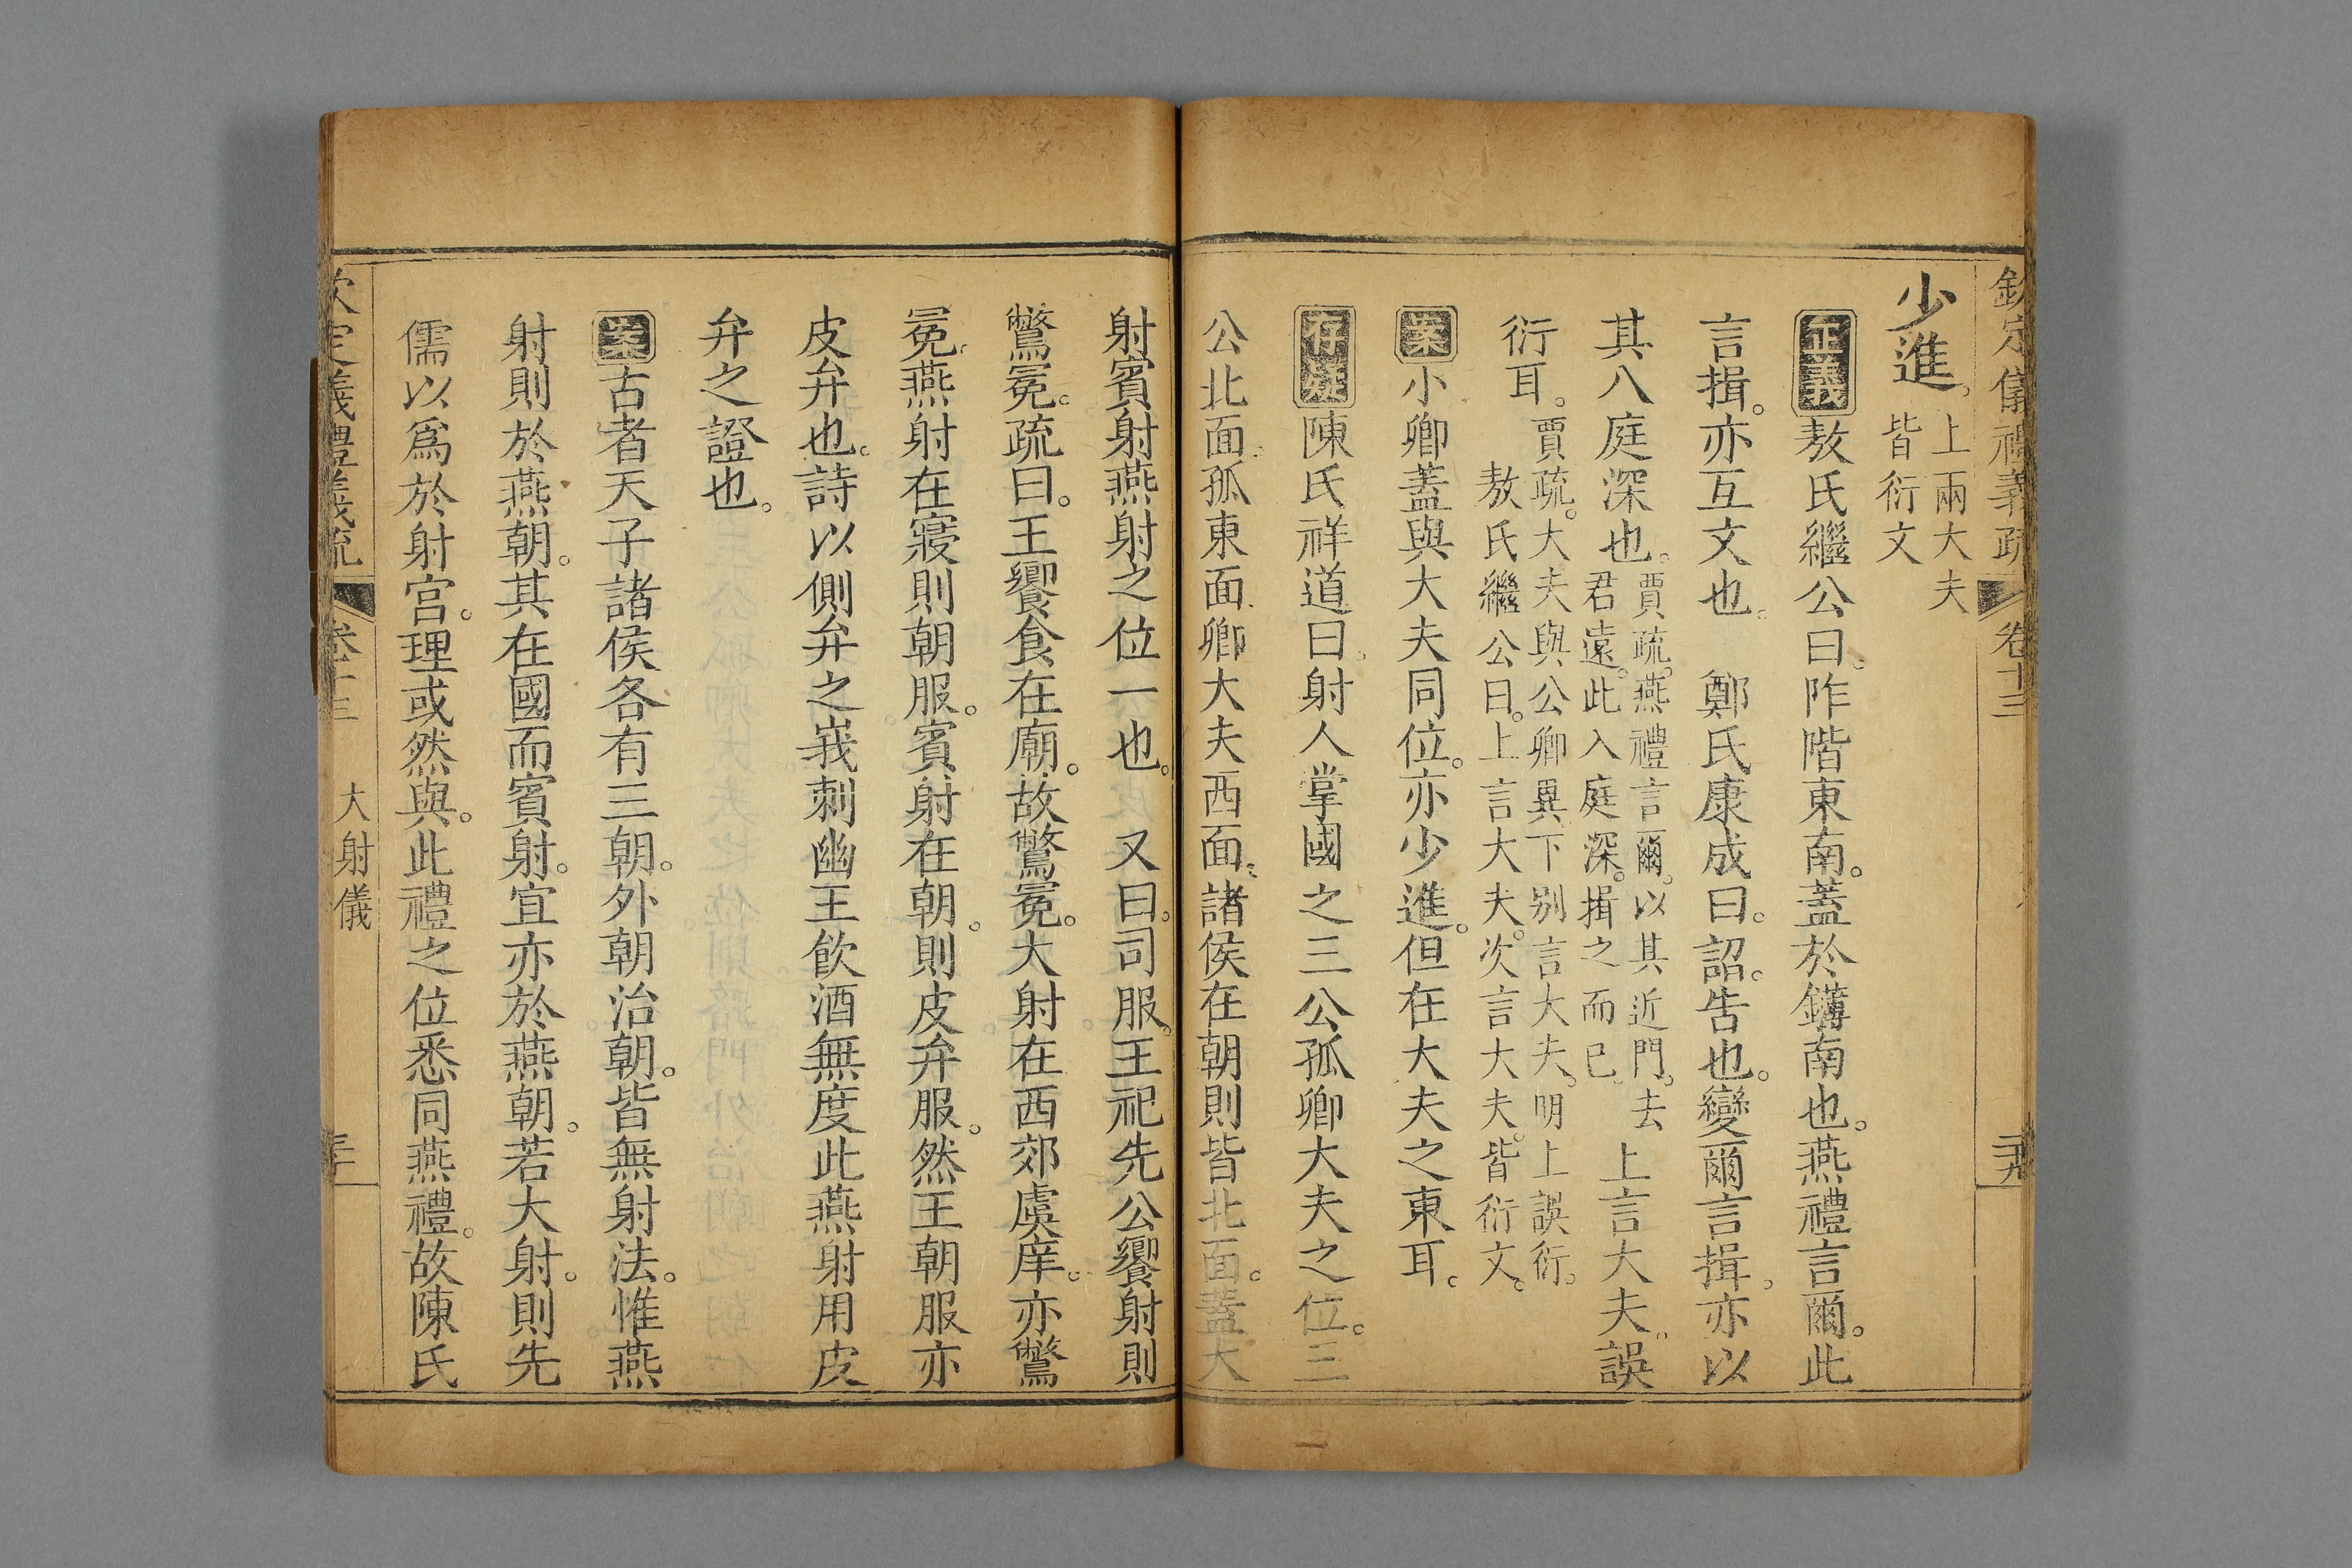 欽定儀禮義疏 卷十三
少進。上兩大夫
皆衍文
正義敖氏繼公曰。阼階東南。蓋於鑮南也。燕禮言爾。此
言揖。亦互文也。 鄭氏康成曰。詔。告也。變爾言揖。亦以
其入庭深也。賈疏。燕禮言爾。以其近門。去
君遠。此入庭深。揖之而已。上言大夫。誤
衍耳。賈疏。大夫與公卿異。下别言大夫。明上誤衍。
敖氏繼公曰。上言大夫。次言大夫。皆衍文。
案小卿蓋與大夫同位。亦少進。但在大夫之東耳。
存疑陳氏祥道曰。射人掌國之三公孤卿大夫之位。三
公北面。孤東面。卿大夫西面。諸侯在朝則皆北面。蓋大
射賓射燕射之位一也。 又曰。司服。王祀先公饗射則
鷩冕。疏曰。王饗食在廟。故鷩冕。大射在西郊虞庠。亦鷩
冕。燕射在寢則朝服。賓射在朝。則皮弁服。然王朝服亦
皮弁也。詩以側弁之峩刺幽王飲酒無度此燕射用皮
弁之證也。
案古者天子諸侯各有三朝。外朝治朝。皆無射法。惟燕
射則於燕朝。其在國而賓射。宜亦於燕朝。若大射。則先
儒以爲於射宮。理或然與。此禮之位悉同燕禮。故陳氏
欽定儀禮義疏 卷十三 大射儀